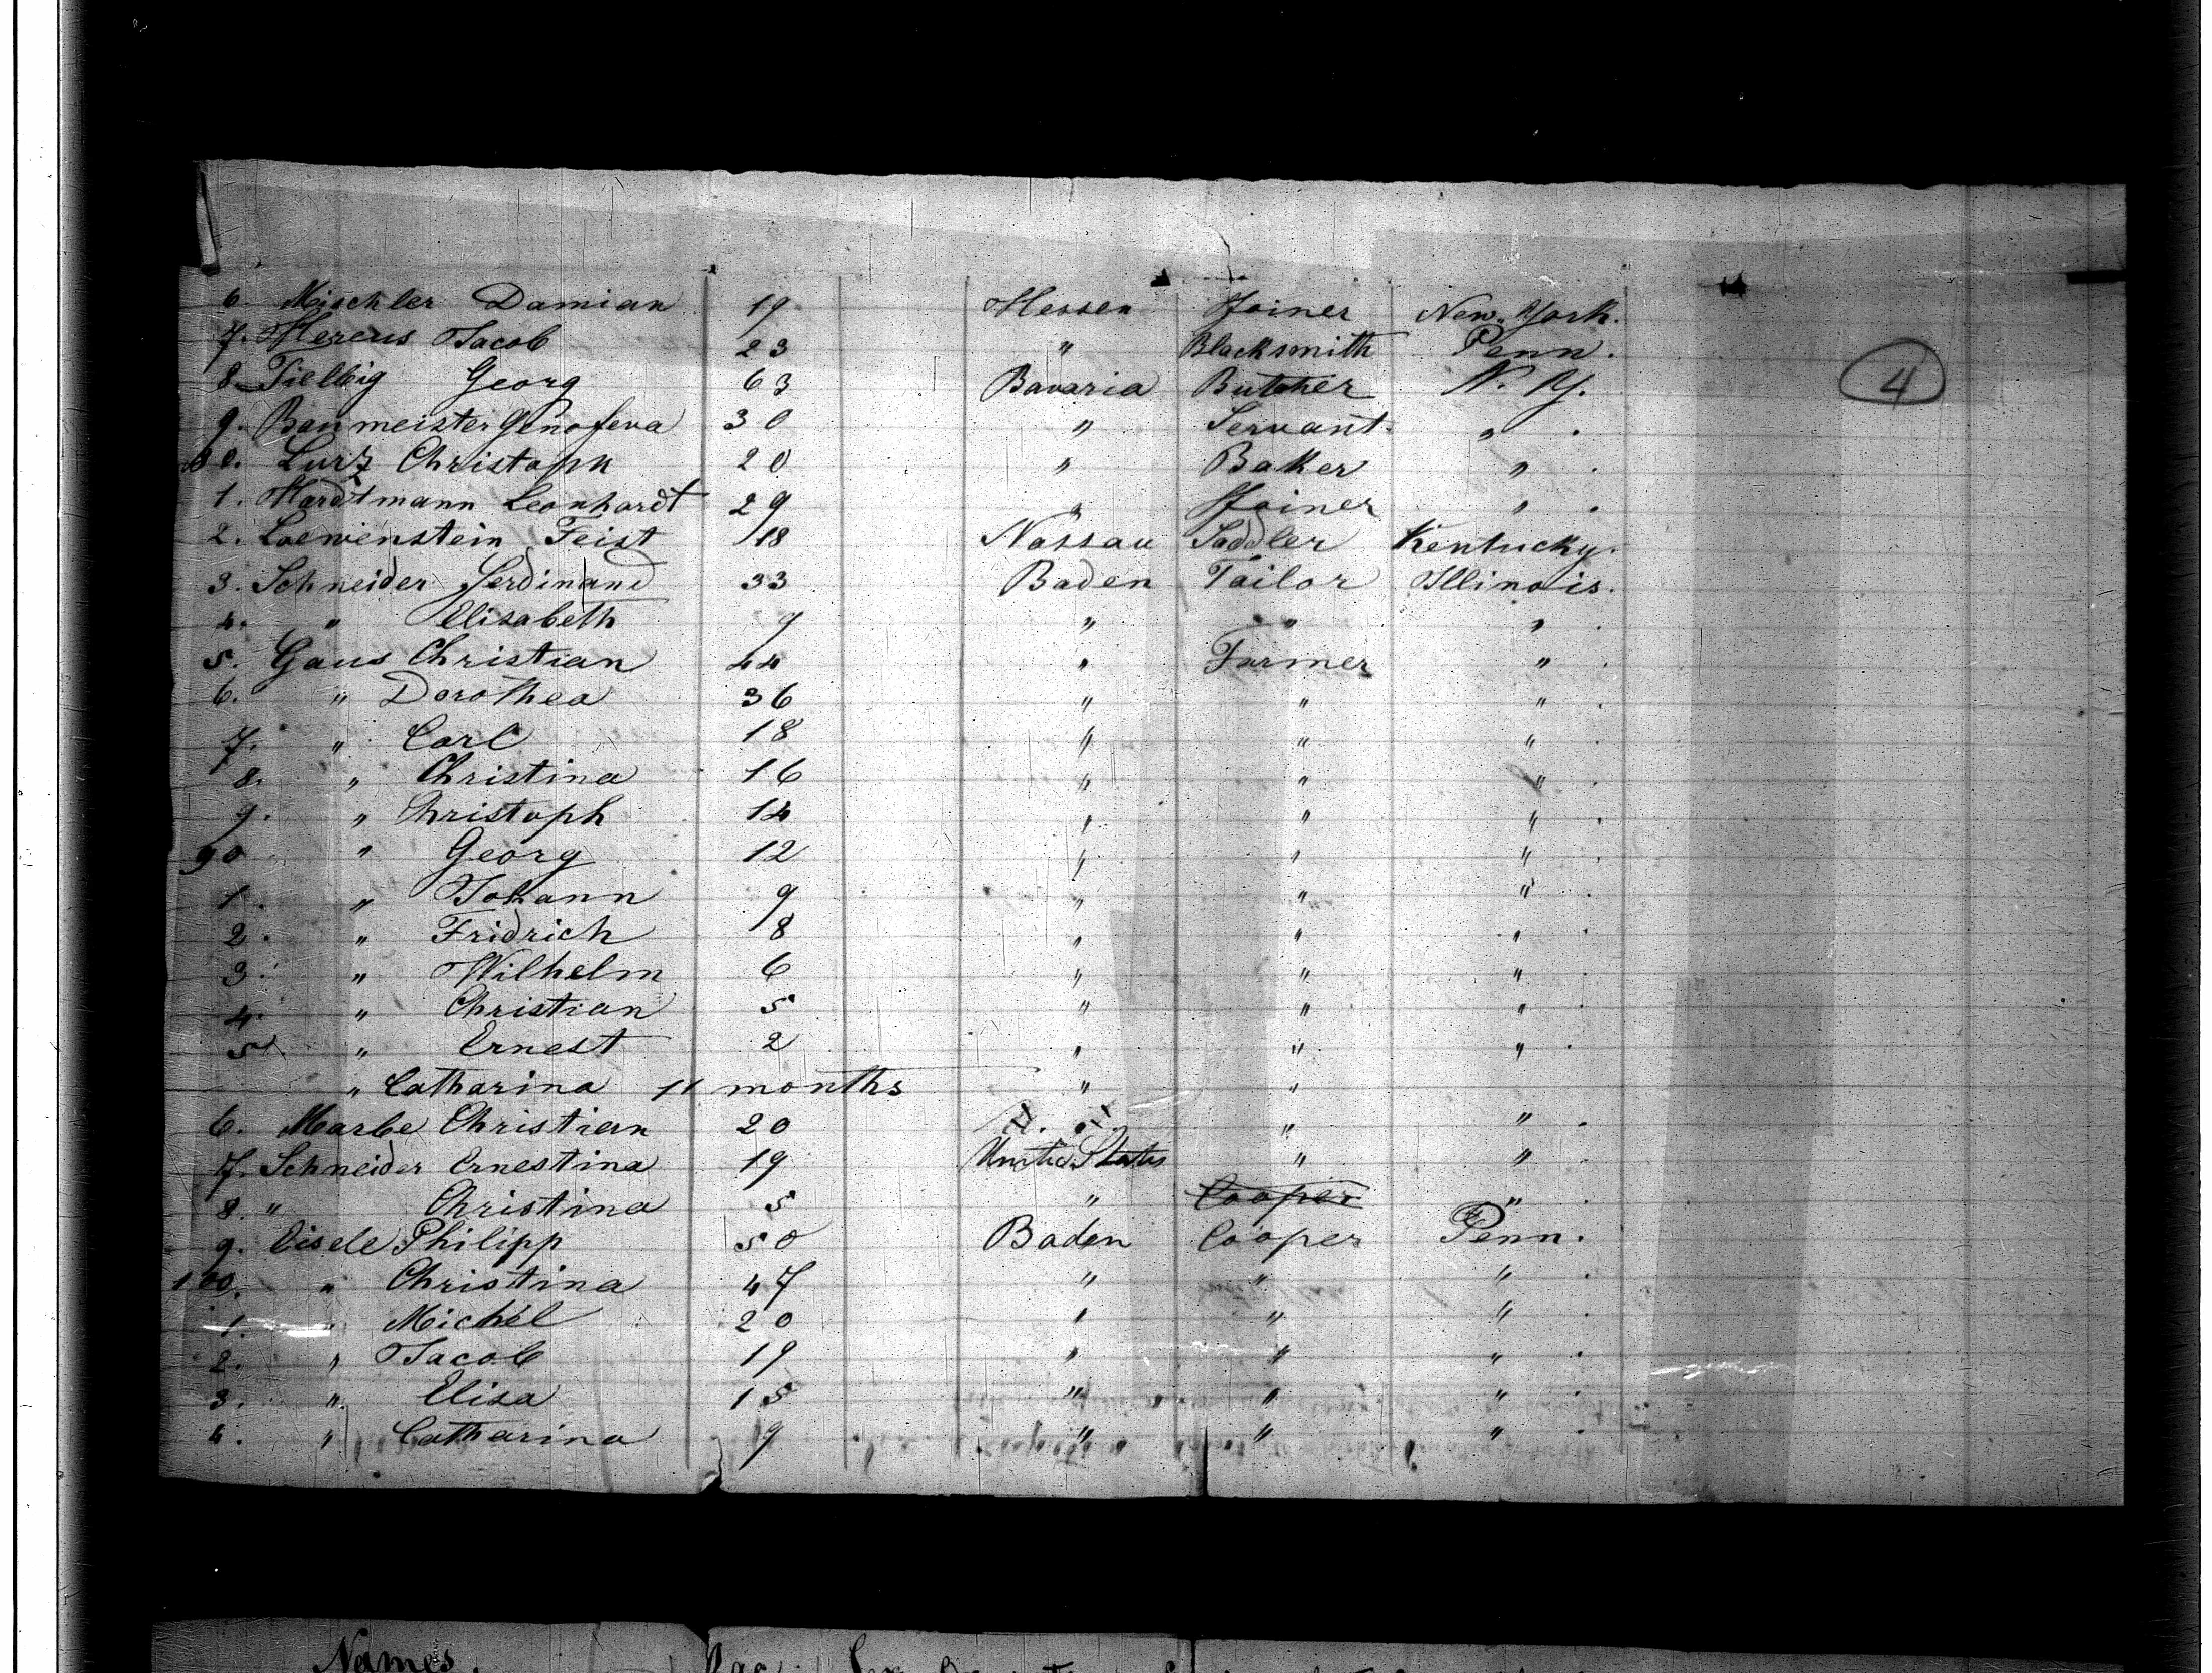 6. Mischler Damian 19 Hessen Joiner New-York.
7. Hereus Jacob 23 " Blacksmith Penn.
8 Tielbig Georg 63 Bavaria Butcher N. Y.
9. Baumeister Genofeva 30 " Servant " .
80. Lurz Christoph 20 " Baker " .
1. Hardtmann Leonhardt 29 " Joiner " .
2. Loewenstein Feist 18 Nassau Saddler Kentucky.
3. Schneider Ferdinand 33 Baden Tailor Illinois.
4. " Elisabeth 9 " " " .
5. Gaus Christian 44 " Farmer " .
6. " Dorothea 36 " " " .
7. " Carl 18 " " " .
8. " Christina 16 " " " .
9. " Christoph 14 " " " .
90 " Georg 12 " " " .
1. " Johann 9 " " " .
2. " Fridrich 8 " " " .
3. " Wilhelm 6 " " " .
4. " Christian 5 " " " .
5 " Ernest 2 " " " .
" Catharina 11 months " "
6. Marbe Christian 20 " " .
7. Schneider Ernestina 19 United States " " .
8. " Christina 5 " Cooper " .
9. Eisele Philipp 50 Baden Cooper Penn.
100. " Christina 47 " " " .
1. " Michel 20 " " " .
2. " Jacob 19 " " " .
3. " Elisa 15 " " " .
4. " Catharina 9 " " " .
4
Names.